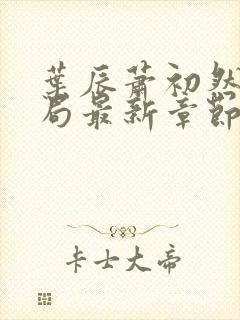 葉辰蕭初然
局最新章節
卡士大帝